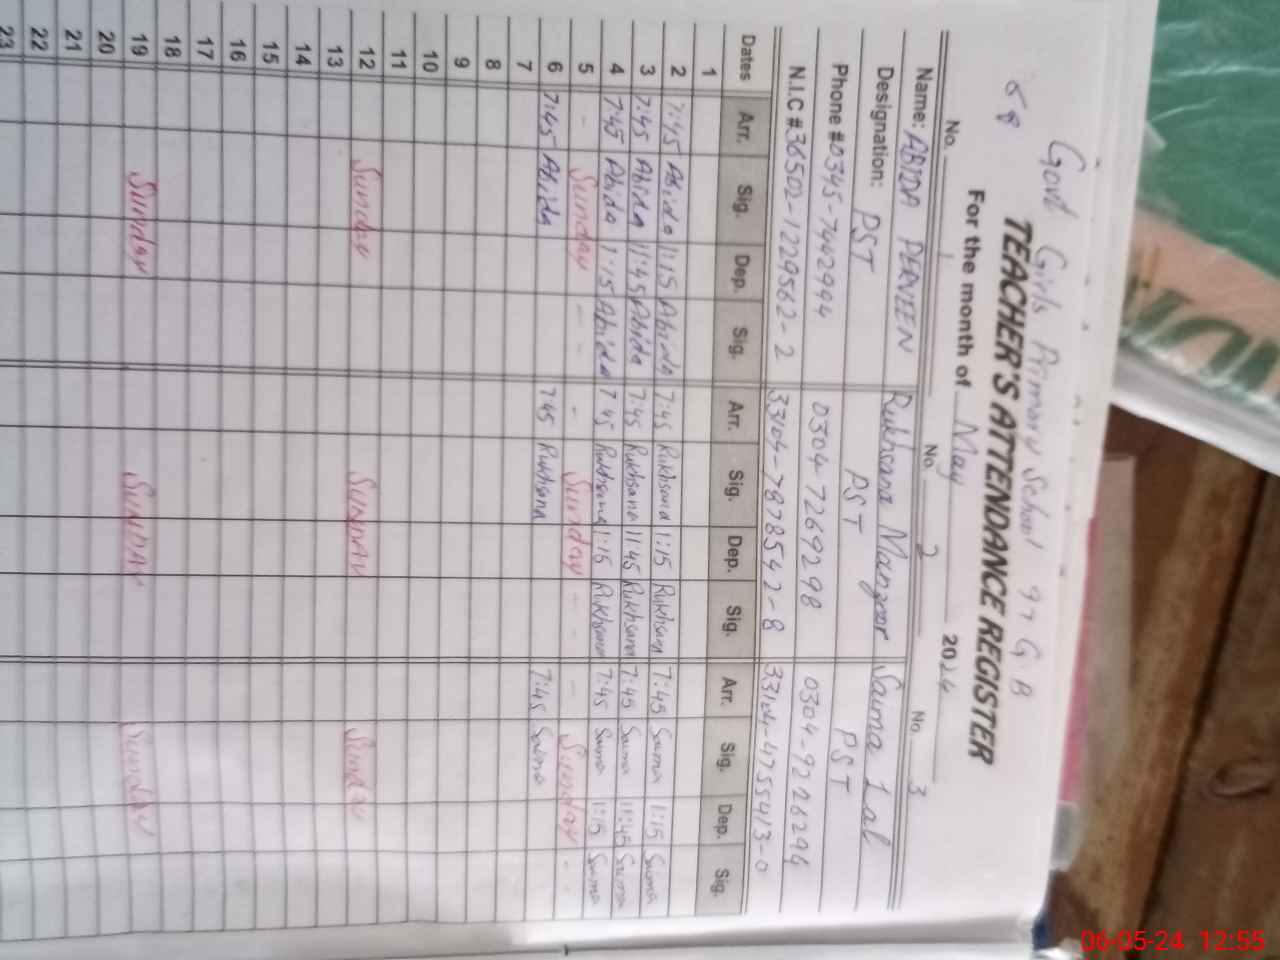 Govt Girls Primary School 97 G B
TEACHER'S ATTENDANCE REGISTER
For the month of May 2024
No. 1 No. 2 No. 3
Name: ABIDA PERVEEN Rukhsana Manzoor Saima Lal
Designation: PST PST PST
Phone # 0345-7442994 0304-7269298 0304-9226294
N.I.C # 36502-1229562-2 33104-7878542-8 33104-4755413-0
Dates Arr. Sig. Dep. Sig. Arr. Sig. Dep. Sig. Arr. Sig. Dep. Sig.
1
2 7:45 Abida 1:15 Abida 7:45 Rukhsana 1:15 Rukhsana 7:45 Saima 1:15 Saima
3 7:45 Abida 11:45 Abida 7:45 Rukhsana 11:45 Rukhsana 7:45 Saima 11:45 Saima
4 7:45 Abida 1:15 Abida 7 45 Rukhsana 1:15 Rukhsana 7:45 Saima 1:15 Saima
5 - Sunday - - - Sunday - - - Sunday - -
6 7:45 Abida 7 45 Rukhsana 7:45 Saima
7
8
9
10
11
12 Sunday SUNDAY Sunday
13
14
15
16
17
18
19 Sunday SUNDAY Sunday
20
21
22
23
06-05-24 12:55